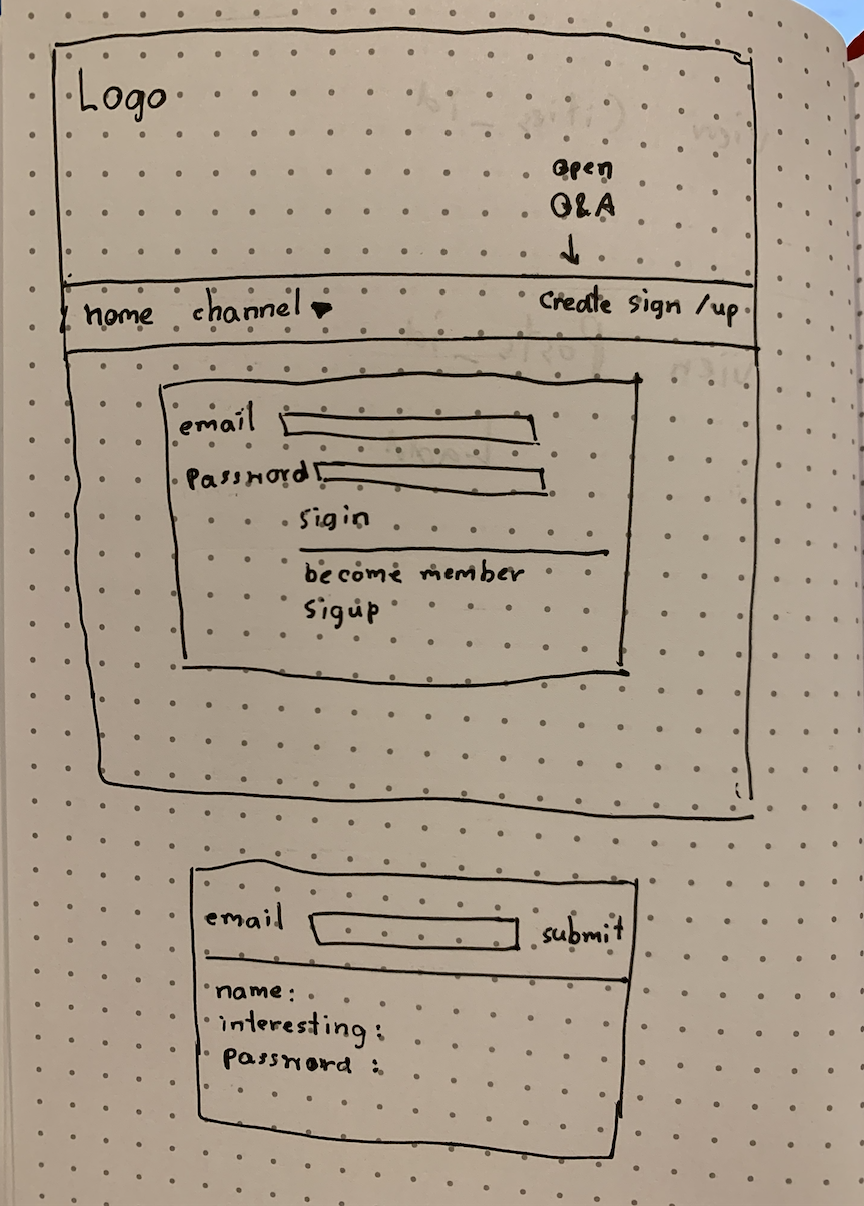 Logo
open
Q&A
home channel
Create sign /up
email
password
sigin
become member
sigup
email submit
name:
interesting:
password :